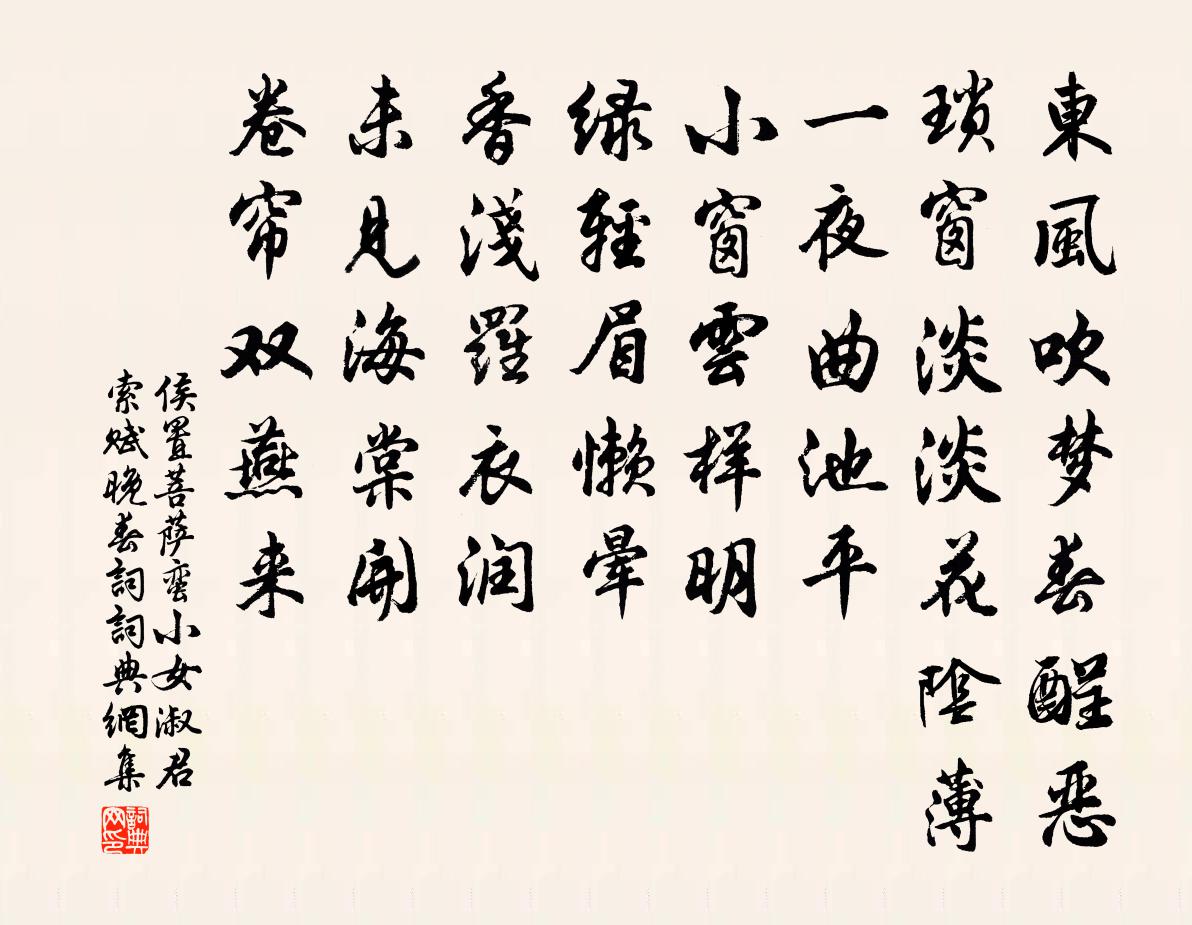 東風吹梦春醒恶
瑣窗淡淡花陰薄
一夜曲池平
小窗雲样明
緑輕眉懒暈
香淺羅衣润
未見海棠開
卷帘双燕来
侯置菩萨蛮小女淑君
索赋晚春詞詞典網集
詞典
网印